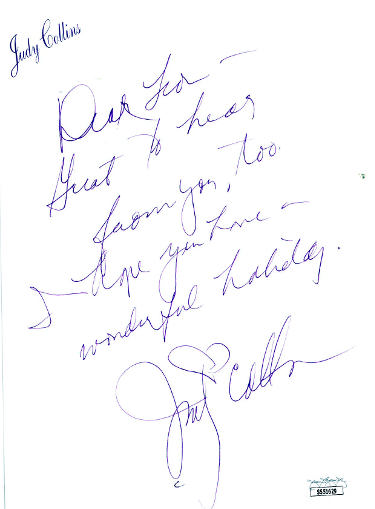 Judy Collins
Dear Leo -
Great to hear
from you, too.
I hope you have -
wonderful holiday.
Judy Collins